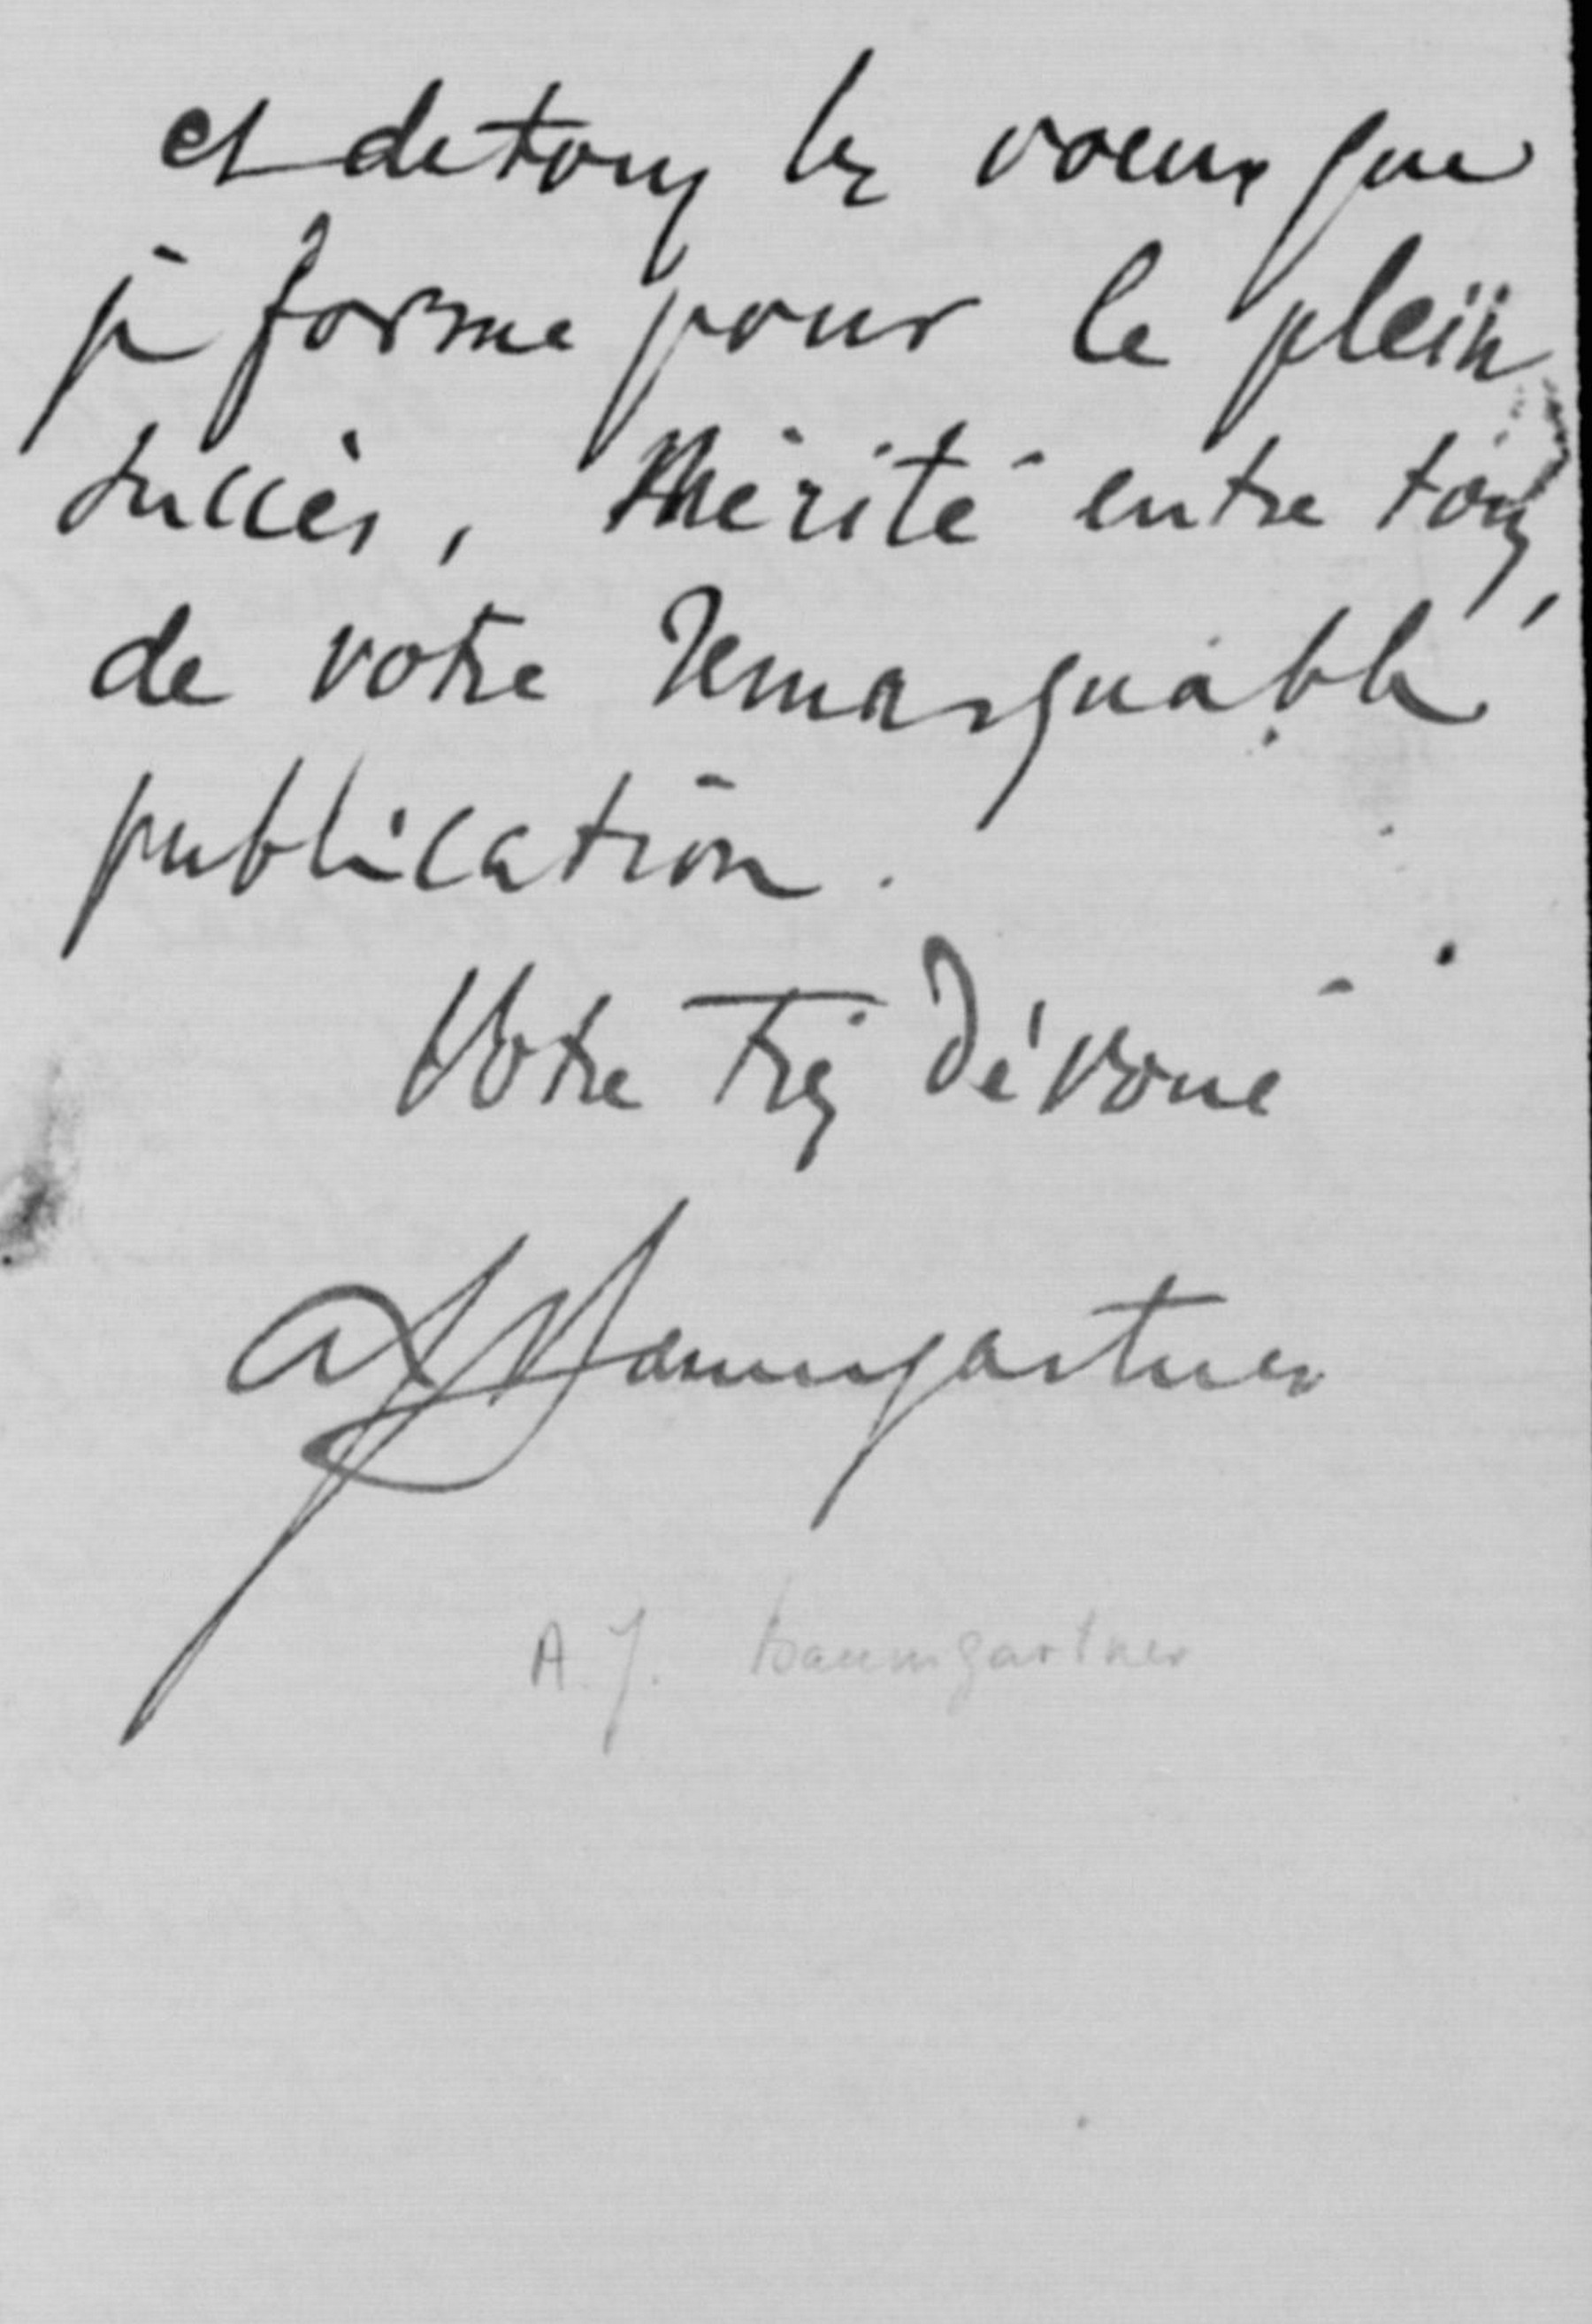 et de tous les vœux que
je forme pour le plein
succès, mérité entre tous,
de votre remarquable
publication.
Votre très dévoué
AJBaumgartner
A. J. Baumgartner